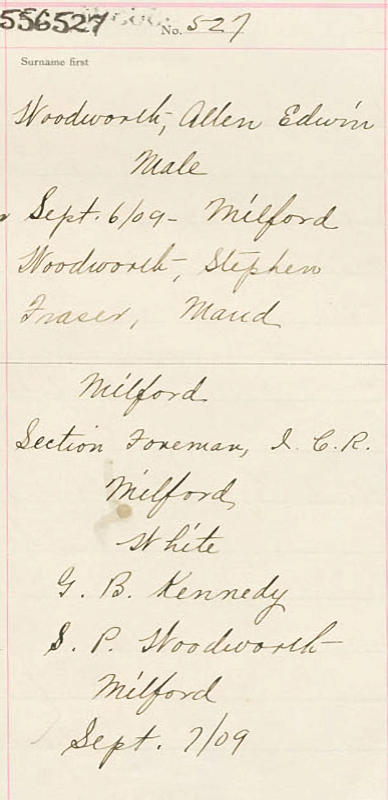 556527
No. 527
Surname first
Woodworth, Allen Edwin
Male
Sept. 6/09 - Milford
Woodworth, Stephen
Fraser, Maud
Milford
Section Foreman, I. C. R.
Milford
White
G. B. Kennedy
S. P. Woodworth
Milford
Sept. 7/09